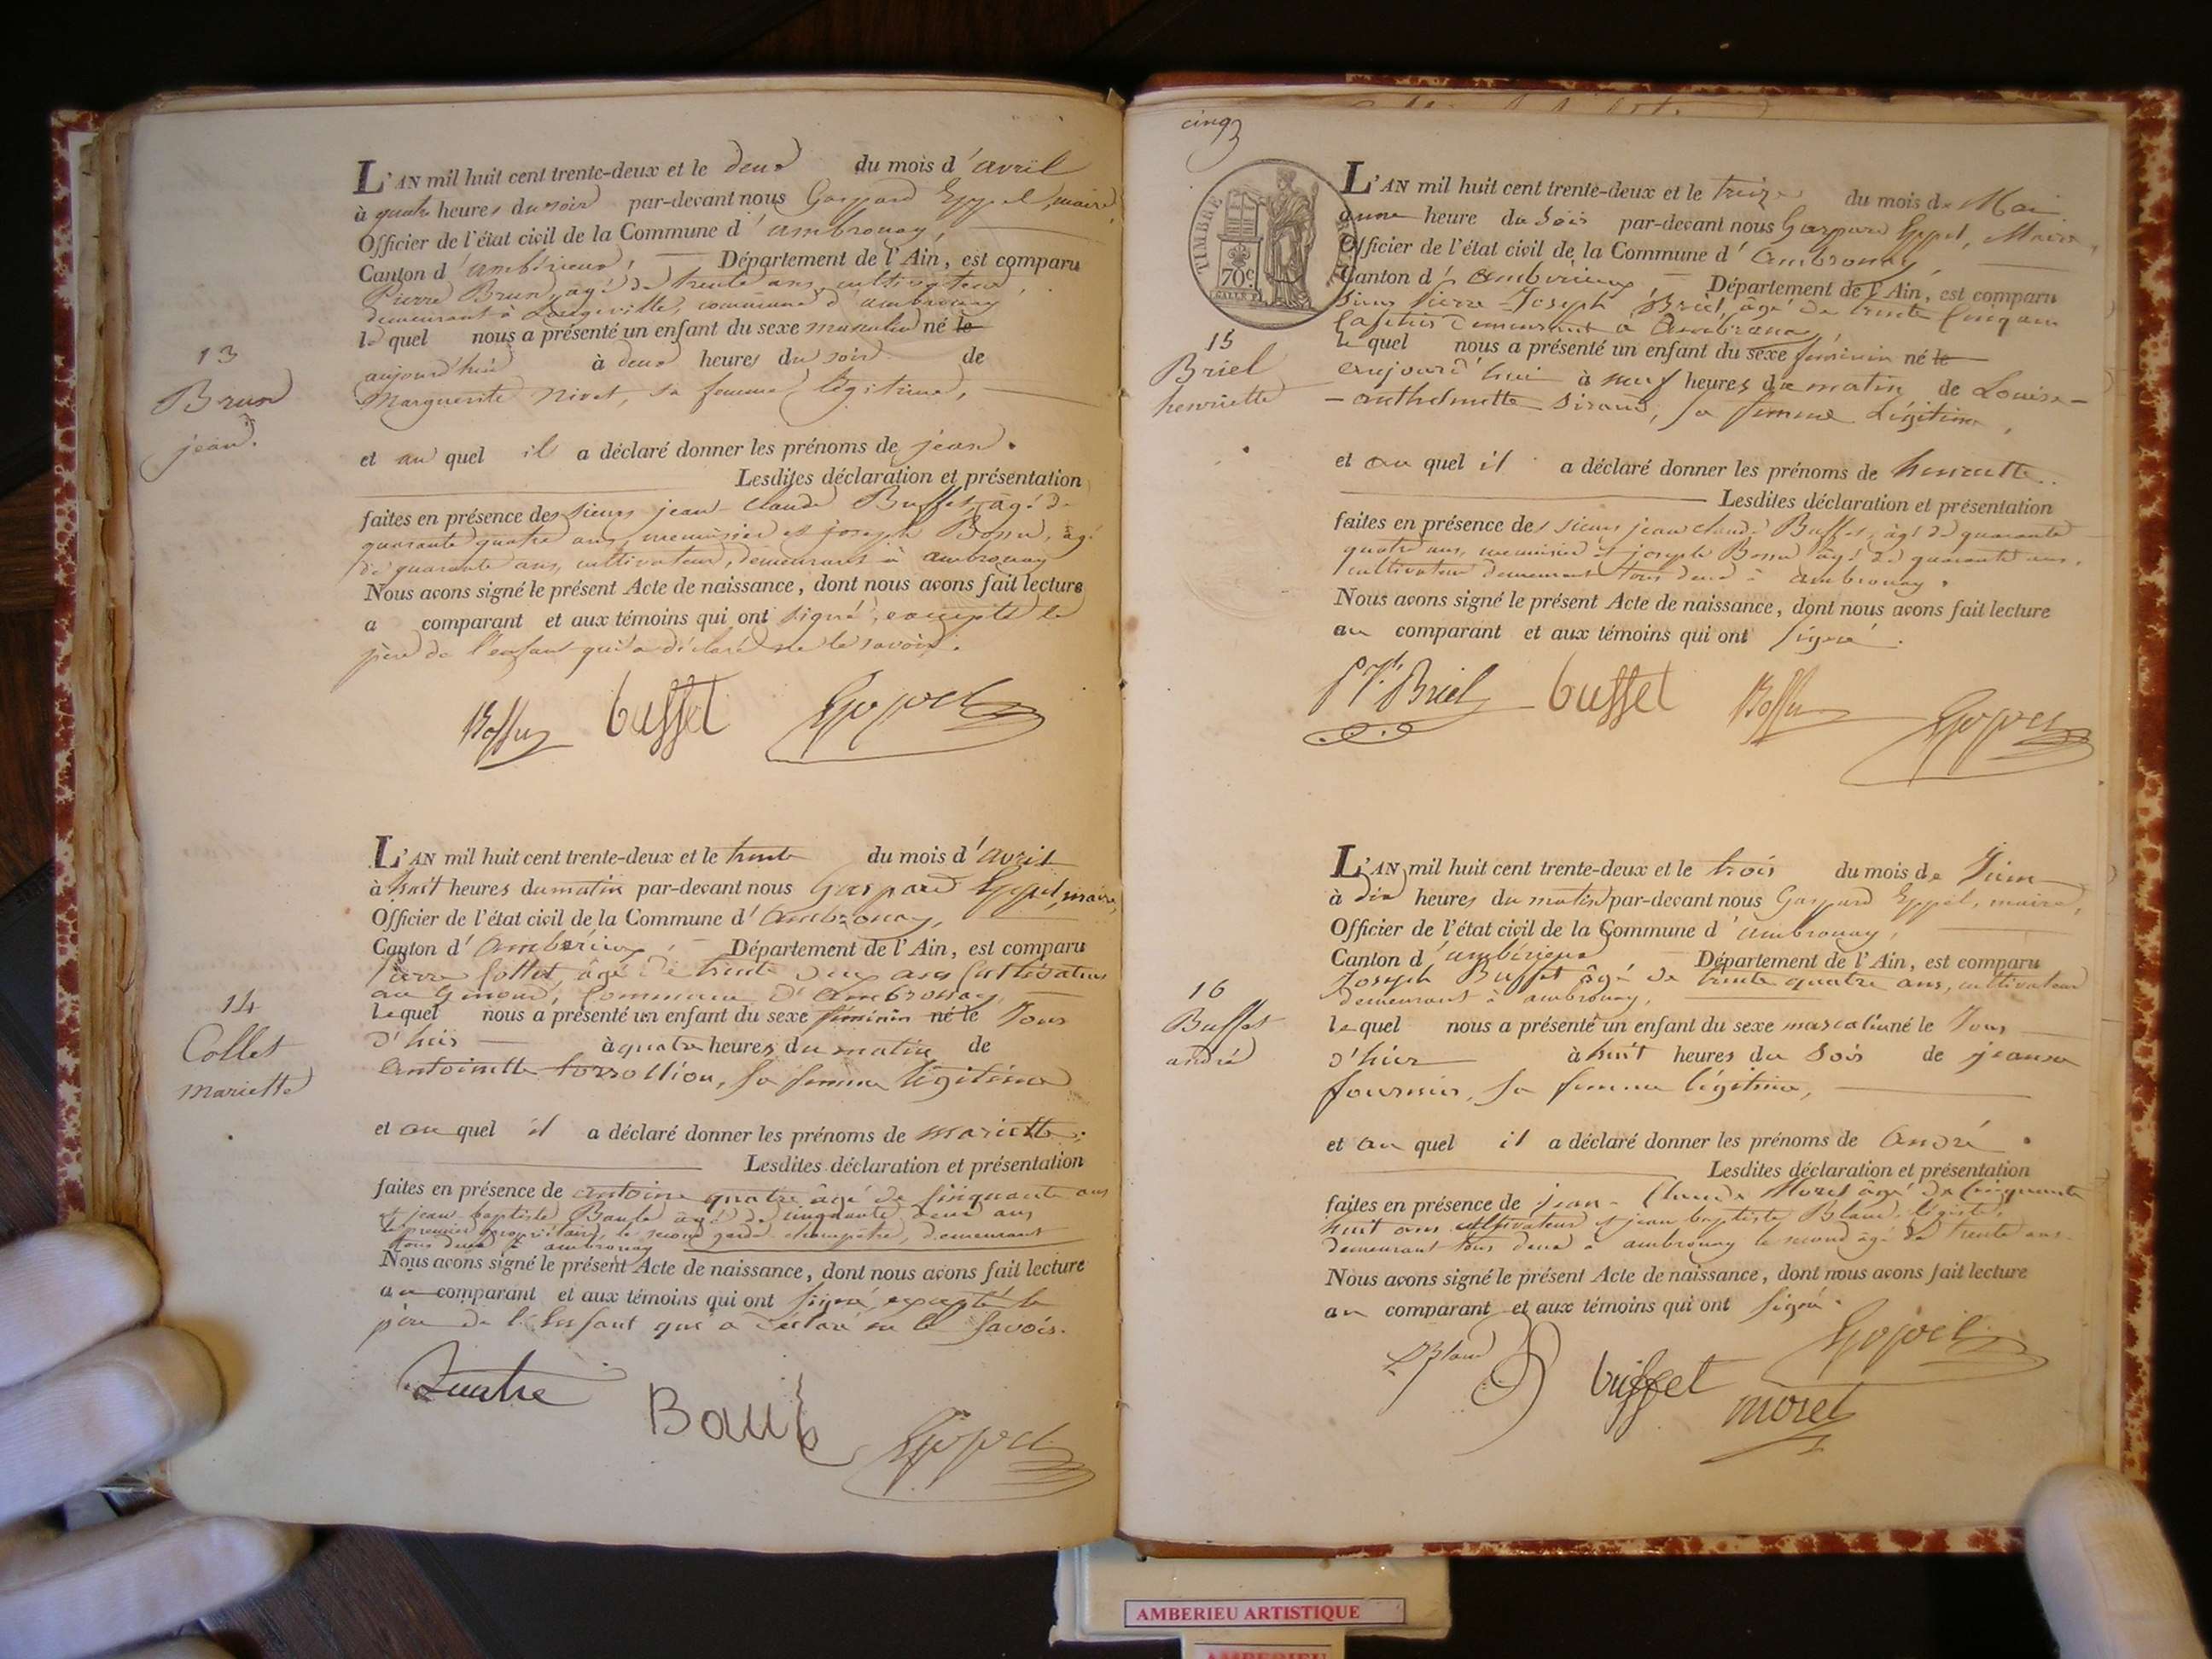 L'AN mil huit cent trente-deux et le deux du mois d'avril
à quatre heures du soir par-devant nous Gaspard Eppel, maire,
Officier de l'état civil de la Commune d'ambronay,
Canton d'ambérieux, Département de l'Ain, est comparu
Pierre Brun, âgé de trente ans, cultivateur,
demeurant à Longeville, commune d'ambronay
le quel nous a présenté un enfant du sexe masculin né le
13
aujourd'hui à deux heures du soir de
Brun
Marguerite Nivet, sa femme légitime,
jean.
et au quel il a déclaré donner les prénoms de jean.
Lesdites déclaration et présentation
faites en présence des sieurs jean claude Buffet, âgé de
quarante quatre ans, menuisier et joseph Bossu, âgé
de quarante ans, cultivateur, demeurant à ambronay
Nous avons signé le présent Acte de naissance, dont nous avons fait lecture
a comparant et aux témoins qui ont signé, excepté le
père de l'enfant qui a déclaré ne le savoir.
Bossu buffet Eppel
L'AN mil huit cent trente-deux et le trente du mois d'avril
à huit heures du matin par-devant nous Gaspard Eppel, maire,
Officier de l'état civil de la Commune d'Ambronay,
Canton d'Ambérieux, Département de l'Ain, est comparu
Pierre Collet, âgé de trente deux ans Cultivateur
au Genoud, Commune d'Ambronay,
14
Lequel nous a présenté un enfant du sexe féminin né le Jour
Collet
d'hier à quatre heures du matin de
mariette
Antoinette, sa femme légitime
et au quel il a déclaré donner les prénoms de mariette.
Lesdites déclaration et présentation
faites en présence de antoine quatre âgé de Cinquante ans
et jean baptiste Baule âgé de cinquante deux ans
le premier propriétaire, le second garde champêtre, demeurant
tous deux à ambronay
Nous avons signé le présent Acte de naissance, dont nous avons fait lecture
au comparant et aux témoins qui ont signé, excepté le
père de l'Enfant qui a déclaré ne le savoir.
Quatre
Baul
Eppel
cinq
TIMBRE ROYAL
70c.
L'AN mil huit cent trente-deux et le treize du mois de Mai
a une heure du Soir par-devant nous Gaspard Eppel, Maire,
Officier de l'état civil de la Commune d'Ambronay
Canton d'Ambérieux Département de l'Ain, est comparu
Sieur Pierre Joseph Briel, âgé de trente Cinq ans
demeurant à Ambronay,
15
le quel nous a présenté un enfant du sexe féminin né le
Briel
aujourd'hui à neuf heures du matin de Louise-
henriette
-anthelmette Siraud, sa femme Légitime,
et au quel il a déclaré donner les prénoms de henriette.
Lesdites déclaration et présentation
faites en présence des sieurs jean claude Buffet, âgé de quarante
quatre ans, menuisier et joseph Bossu âgé de quarante ans,
cultivateur demeurant tous deux à ambronay.
Nous avons signé le présent Acte de naissance, dont nous avons fait lecture
au comparant et aux témoins qui ont signé.
P J. Briel buffet Bossu
Eppel
L'AN mil huit cent trente-deux et le trois du mois de Juin
à dix heures du matin par-devant nous Gaspard Eppel, maire,
Officier de l'état civil de la Commune d'ambronay,
Canton d'ambérieux Département de l'Ain, est comparu
Joseph Buffet âgé de trente quatre ans, cultivateur
demeurant à ambronay,
16
Buffet
le quel nous a présenté un enfant du sexe masculin né le Jour
andré
d'hier à huit heures du Soir de jeanne
fournier, sa femme légitime,
et au quel il a déclaré donner les prénoms de André.
Lesdites déclaration et présentation
faites en présence de jean-Claude Morel âgé de Cinquante
huit ans cultivateur et jean baptiste Bland, légiste,
demeurant tous deux à ambronay le second âgé de trente ans.
Nous avons signé le présent Acte de naissance, dont nous avons fait lecture
au comparant et aux témoins qui ont signé.
Bland buffet Eppel
morel
AMBERIEU ARTISTIQUE
AMBERIEU